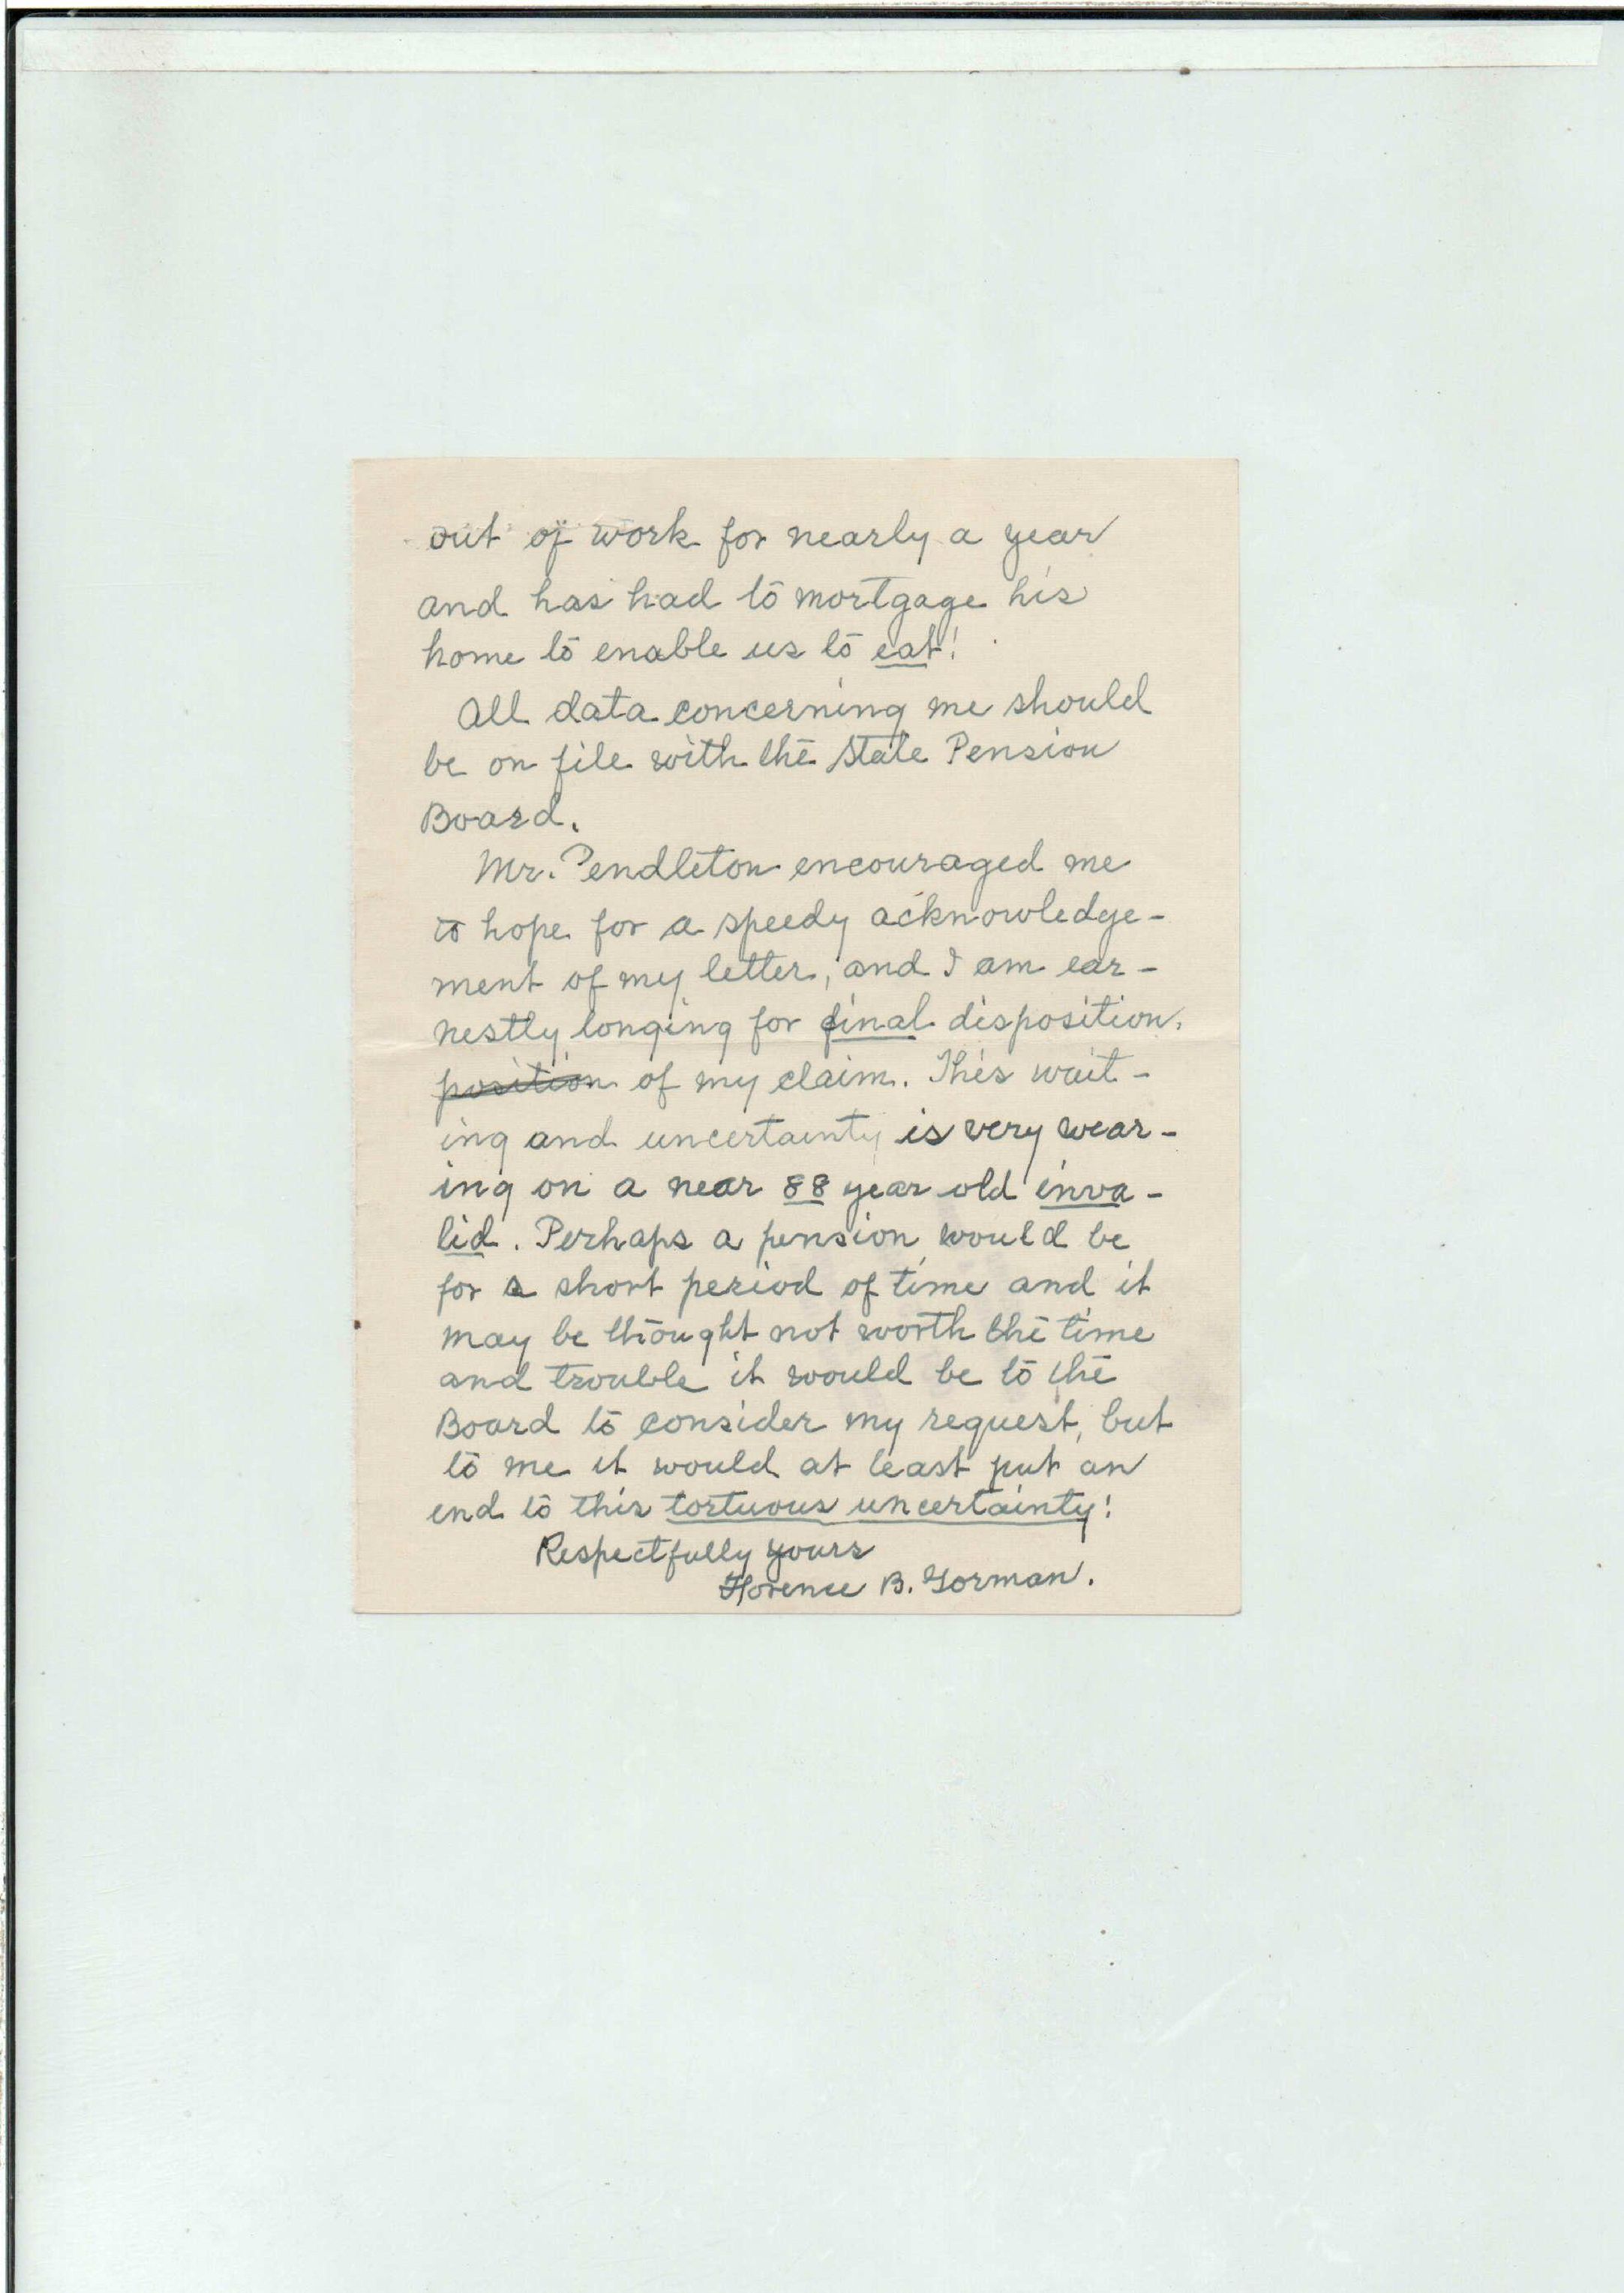 out of work for nearly a year
and has had to mortgage his
home to enable us to eat!
All data concerning me should
be on file with the State Pension
Board.
Mr. Pendleton encouraged me
to hope for a speedy acknowledge-
ment of my letter, and I am ear-
nestly longing for final disposition.
position of my claim. This wait-
ing and uncertainty is very wear-
ing on a near 88 year old inva-
lid. Perhaps a pension would be
for a short period of time and it
may be thought not worth the time
and trouble it would be to the
Board to consider my request, but
to me it would at least put an
end to this tortuous uncertainty!
Respectfully yours
Florence B. Gorman.